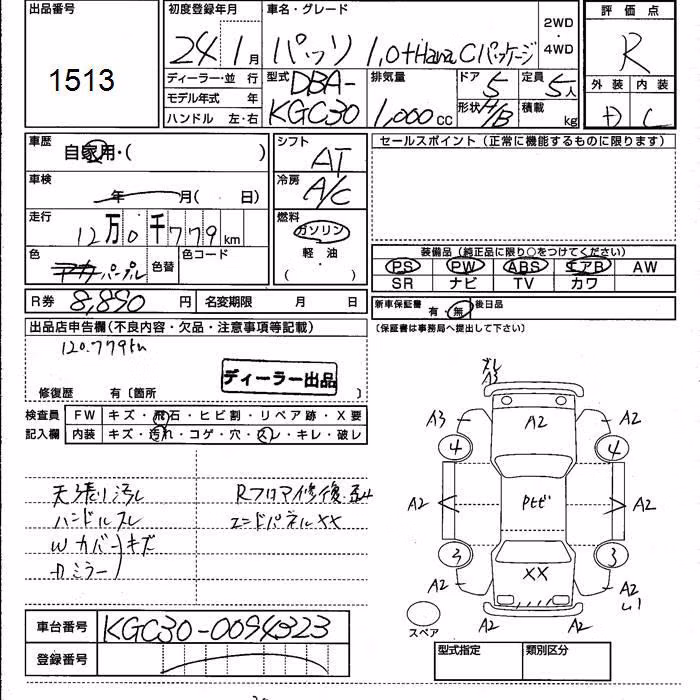 出品番号 初度登録年月 車名・グレード 2WD・4WD 評価点
1513 24 1月 パッソ 1.0+Hana Cパッケージ R
ディーラー・並行 型式 DBA-KGC30 排気量 1,000cc ドア 5 定員 5人 外装 内装
モデル年式 年 形状 H/B 積載 kg D C
ハンドル 左・右
車歴 自家用・( ) シフト AT セールスポイント (正常に機能するものに限ります)
車検 年 月( 日) 冷房 A/C
走行 12万0千779km 燃料 ガソリン
軽・油
・( )
色 アカ パープル 色替 色コード 装備品 (純正品に限り○をつけてください)
PS PW ABS エアB AW
SR ナビ TV カワ
R券 8,890円 名変期限 月 日 新車保証書 有・無 後日品
出品店申告欄(不良内容・欠品・注意事項等記載) (保証書は事務局へ提出して下さい)
120.779km
ディーラー出品
修復歴 有〔箇所 〕
検査員 FW キズ・飛石・ヒビ割・リペア跡・X要
記入欄 内装 キズ・汚れ・コゲ・穴・スレ・キレ・破レ
天張り汚レ Rフロア修復歪み
ハンドルスレ エンドパネルXX
Wカバーキズ
Dミラー
ズレ
A3
A3 A2 A2
4 4
A2 A2
3 3
XX
A2 A2
A2 A2
スペア
車台番号 KGC30-0094323
登録番号
型式指定 類別区分